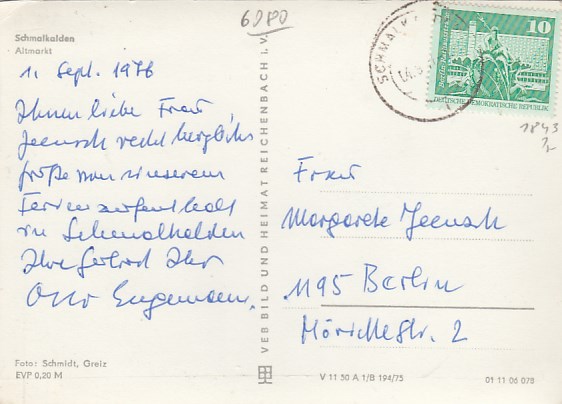 6080
Schmalkalden
Altmarkt
1. Sept. 1976
Ihnen liebe Frau
Jeensch recht herzliche
Grüße von unserem
Ferienaufenthalt
in Schmalkalden
Ihre Gertrud Ihr
Otto
VEB BILD UND HEIMAT REICHENBACH I. V.
SCHMALK
10
DEUTSCHE DEMOKRATISCHE REPUBLIK
1843
Frau
Margarete Jeensch
1195 Berlin
Mörikestr. 2
Foto: Schmidt, Greiz
EVP 0,20 M
V 11 50 A 1/B 194/75
01 11 06 078